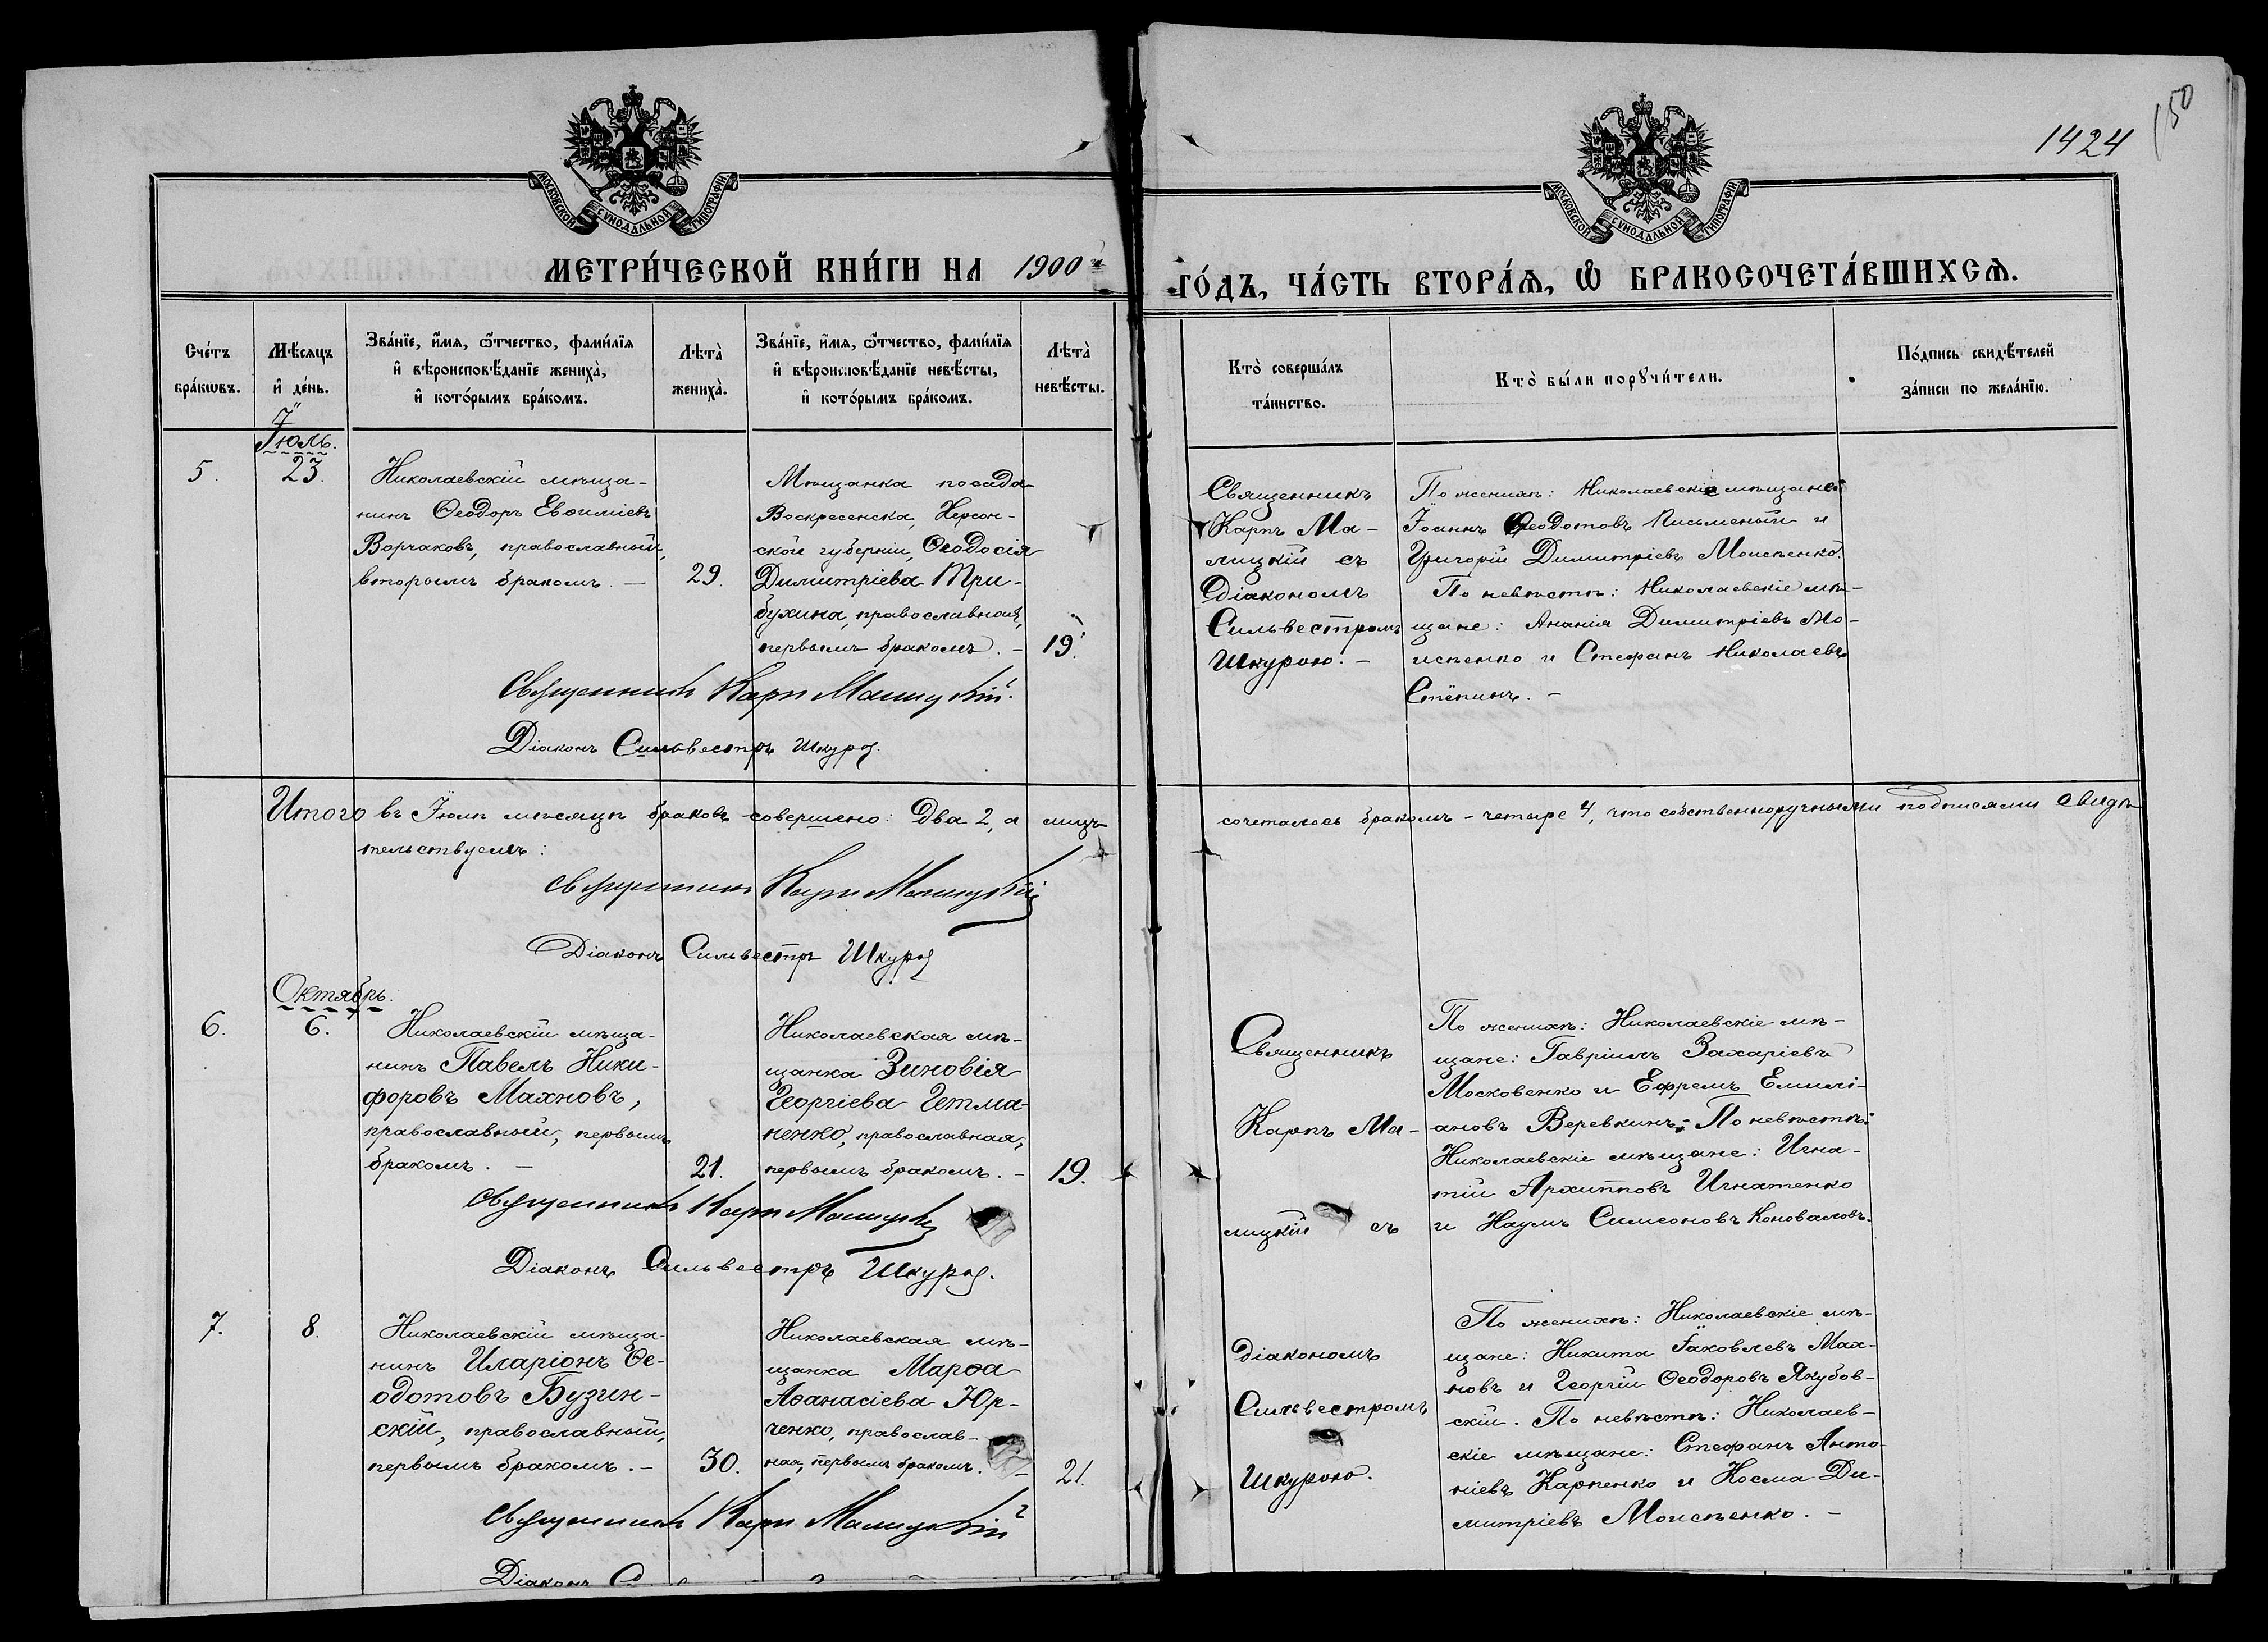 1424
150
МОСКОВСКОЙ СѴНОДАЛЬНОЙ ТИПОГРАФІИ
МОСКОВСКОЙ СѴНОДАЛЬНОЙ ТИПОГРАФІИ
МЕТРИ́ЧЕСКОЙ КНИ́ГИ НА 1900
ГО́ДЪ, ЧА́СТЬ ВТОРА́Ѧ, Ѽ БРАКОСОЧЕТА́ВШИХСѦ.
Сче́тъ
бра́кѡвъ.
Мѣ́сѧцъ
и҆ де́нь.
Зва́нїе, и҆́мѧ, ѻ҆́тчество, фами́лїѧ
и҆ вѣроисповѣ́данїе жениха̀,
и҆ кото́рымъ бра́комъ.
Лѣ́та
жениха̀.
Зва́нїе, и҆́мѧ, ѻ҆́тчество, фами́лїѧ
и҆ вѣроисповѣ́данїе невѣ́сты,
и҆ кото́рымъ бра́комъ.
Лѣ́та
невѣ́сты.
Кто̀ соверша́лъ
та́инство.
Кто̀ бы́ли порꙋчи́тели.
По́дпись свидѣ́телей
за́писи по жела́нїю.
Іюль.
5.
23.
Николаевскій мѣща-
нинъ Ѳеодоръ Евѳиміевъ
Ворчаковъ, православный,
вторымъ бракомъ. —
29.
Мѣщанка посада
Воскресенска, Херсон-
ской губерніи, Ѳеодосія
Димитріева Три-
бухина, православная,
первымъ бракомъ. —
19.
Священникъ
Карпъ Ма-
лицкій съ
Діакономъ
Сильвестромъ
Шкурою. —
По женихѣ: Николаевскіе мѣщане:
Іоаннъ Ѳеодотовъ Письменый и
Григорій Димитріевъ Моисеенко.
По невѣстѣ: Николаевскіе мѣ-
щане: Ананія Димитріевъ Мо-
исеенко и Стефанъ Николаевъ
Стёпинъ. —
Священникъ Карпъ Малицкій.
Діаконъ Сильвестръ Шкура.
Итого въ Іюлѣ мѣсяцѣ браковъ совершено: два 2, а лицъ сочеталось бракомъ - четыре 4, что собственноручными подписями свидѣ-
тельствуемъ:
Священникъ Карпъ Малицкій
Діаконъ Сильвестръ Шкура
Октябрь.
6.
6.
Николаевскій мѣща-
нинъ Павелъ Ники-
форовъ Махновъ,
православный, первымъ
бракомъ. —
21.
Николаевская мѣ-
щанка Зиновія
Георгіева Гетма-
ненко, православная,
первымъ бракомъ. —
19.
Священникъ
Карпъ Ма-
лицкій съ
По женихѣ: Николаевскіе мѣ-
щане: Гавріилъ Захаріевъ
Московенко и Ефремъ Емилі-
ановъ Веревкинъ; По невѣстѣ:
Николаевскіе мѣщане: Игна-
тій Архипповъ Игнатенко
и Наумъ Симеоновъ Коноваловъ.
Священникъ Карпъ Малицкій
Діаконъ Сильвестръ Шкура.
7.
8.
Николаевскій мѣща-
нинъ Иларіонъ Ѳе-
одотовъ Бузин-
скій, православный,
первымъ бракомъ. —
30.
Николаевская мѣ-
щанка Марѳа
Аѳанасіева Юр-
ченко, православ-
ная, первымъ бракомъ. —
21.
діакономъ
Сильвестромъ
Шкурою.
По женихѣ: Николаевскіе мѣ-
щане: Никита Іаковлевъ Мах-
новъ и Георгій Ѳеодоровъ Якубов-
скій. По невѣстѣ: Николаев-
скіе мѣщане: Стефанъ Анто-
ніевъ Карпенко и Косма Ди-
митріевъ Моисеенко. —
Священникъ Карпъ Малицкій
Діаконъ